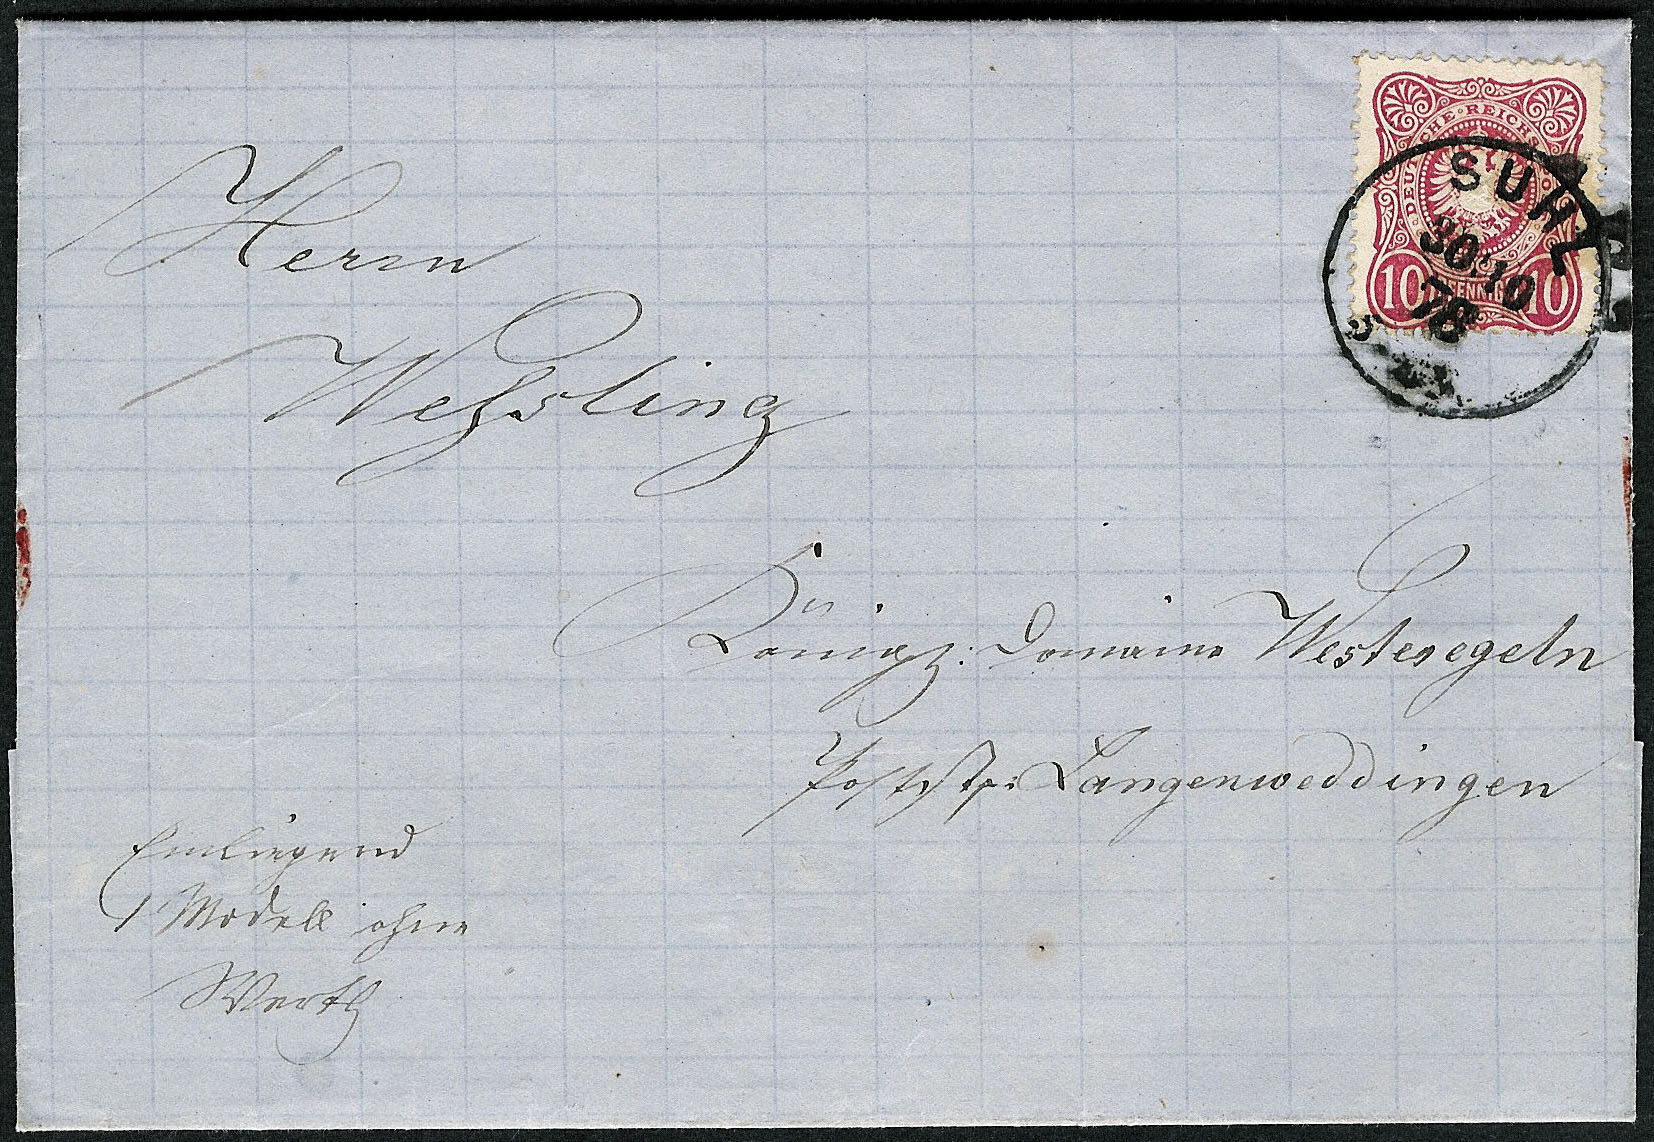 DEUTSCHE · REICHS
10 PFENNIG 10
SUHL
30 10
78
Herrn
Weſsling
Königl: Domaine Westeregeln
Postst: Langenweddingen
Einliegend
1 Modell ohne
Werth